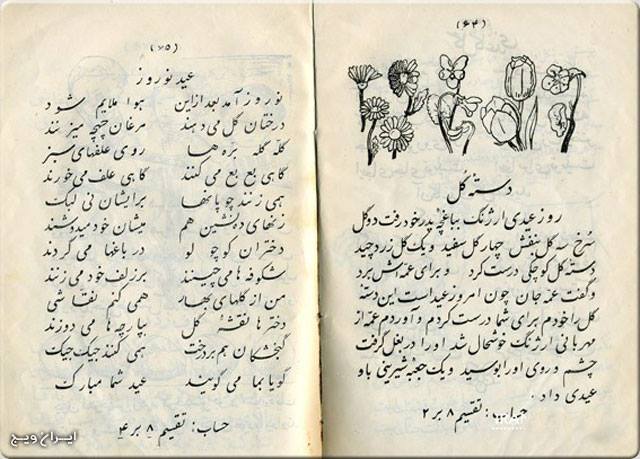 (۶۴)
دسته گل
روز عیدی ارژنگ بباغچه پدر خود رفت دو گل
سرخ سه گل بنفش چهار گل سفید و یک گل زرد چید
دسته گل کوچکی درست کرد و برای عمه اش برد
و گفت عمه جان چون امروز عید است این دسته
گل را خودم برای شما درست کردم و آوردم عمه از
مهربانی ارژنگ خوشحال شد او را در بغل گرفت
چشم و روی او را بوسید و یک جعبه شیرینی باو
عیدی داد.
حساب: تقسیم ۸ بر ۲
(۶۵)
عید نوروز
نوروز آمد بعد از این هوا ملایم شود
درختان گل می دهند مرغان چهچه میزنند
گله گله بره ها روی علفهای سبز
گاهی بع بع می کنند گاهی علف می خورند
هی زنند چوپانها برایشان نی لبک
زنهای ده نشین هم میشان خود میدوشند
دختران کوچولو در باغها می گردند
شکوفه ها می چینند بر زلف خود می زنند
من از گلهای بهار همی کنم نقاشی
دخترها نقشه گل بپارچه ها می دوزند
گنجشکان هم بر درخت هی کنند جیک جیک
گویا بما می گویند عید شما مبارک
حساب: تقسیم ۸ بر ۴
ایران ویج